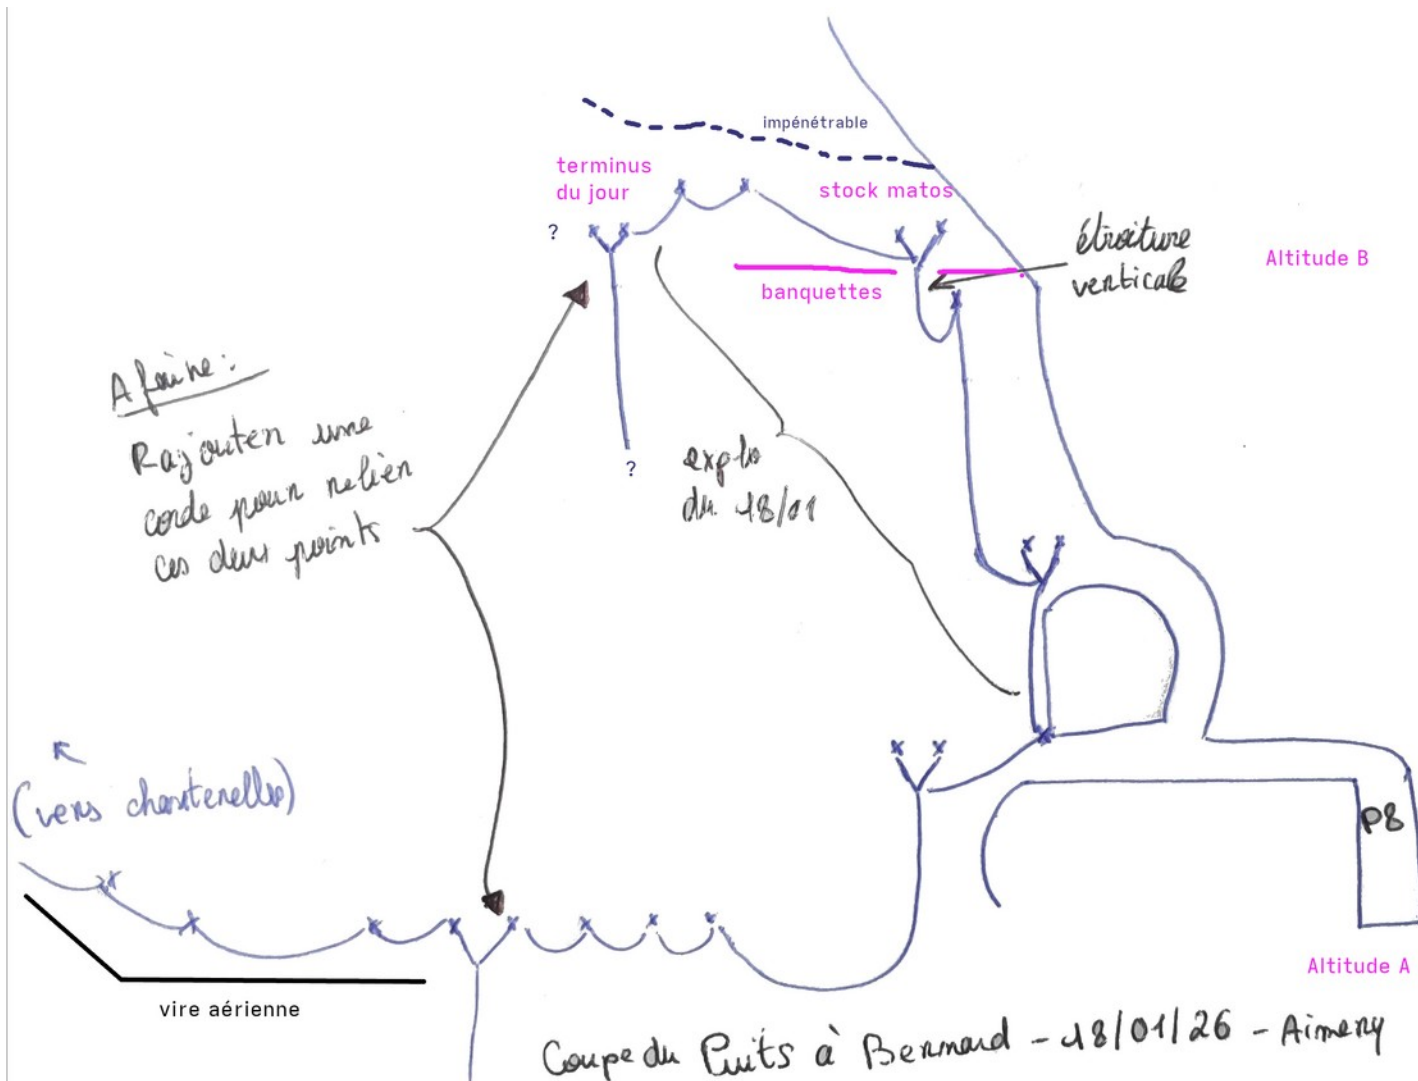 impénétrable
terminus
du jour
stock matos
?
étroiture
verticale
Altitude B
banquettes
A faire:
Rajouter une
corde pour relier
ces deux points
?
explo
du 18/01
(vers chanterelle)
P8
Altitude A
vire aérienne
Coupe du Puits à Bernard - 18/01/26 - Aimery